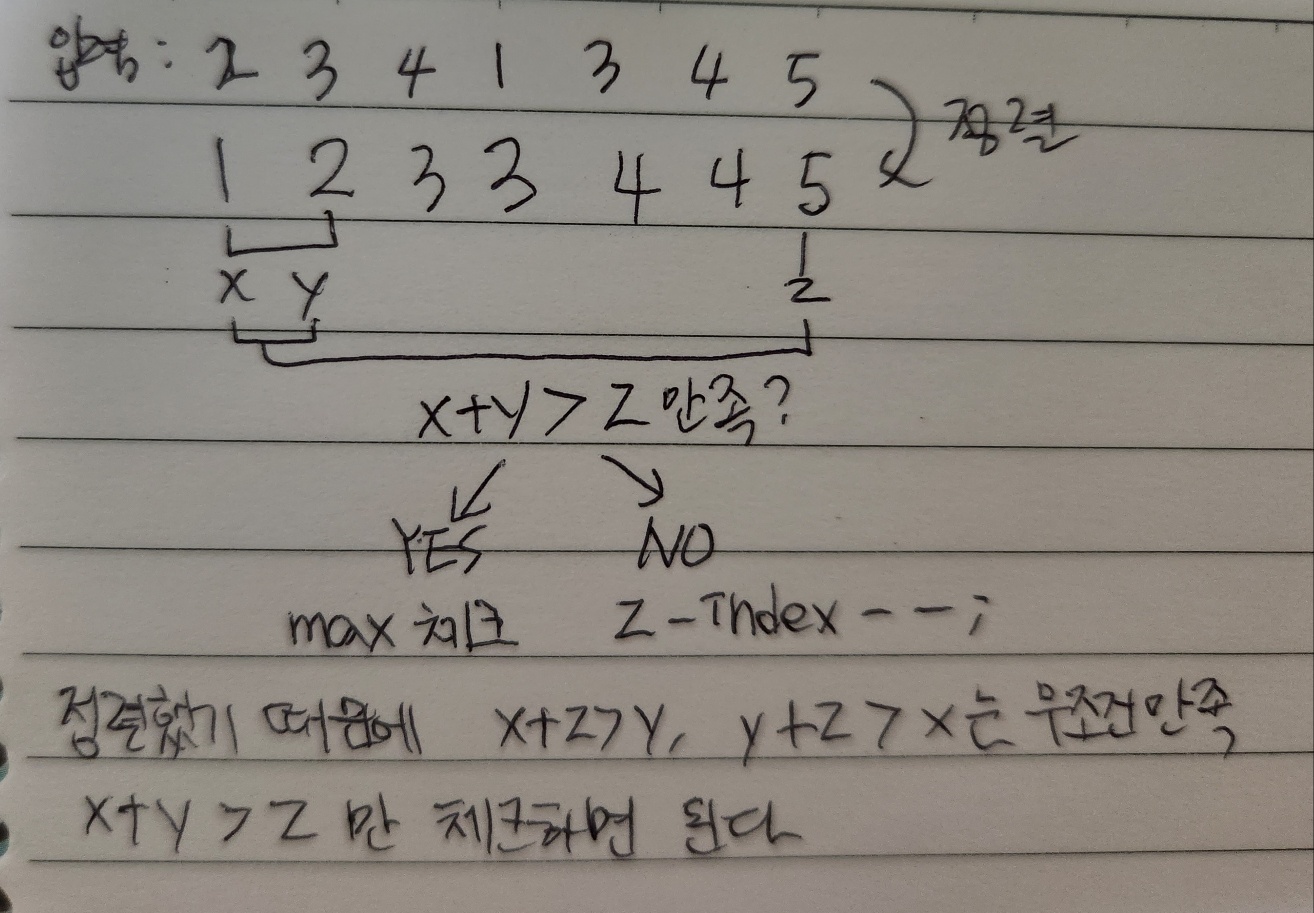 입력: 2 3 4 1 3 4 5
정렬
1 2 3 3 4 4 5
x y z
x+y > z 만족?
YES NO
max 체크 z-Index--;
정렬했기 때문에 x+z>y, y+z>x는 무조건만족
x+y > z 만 체크하면 된다